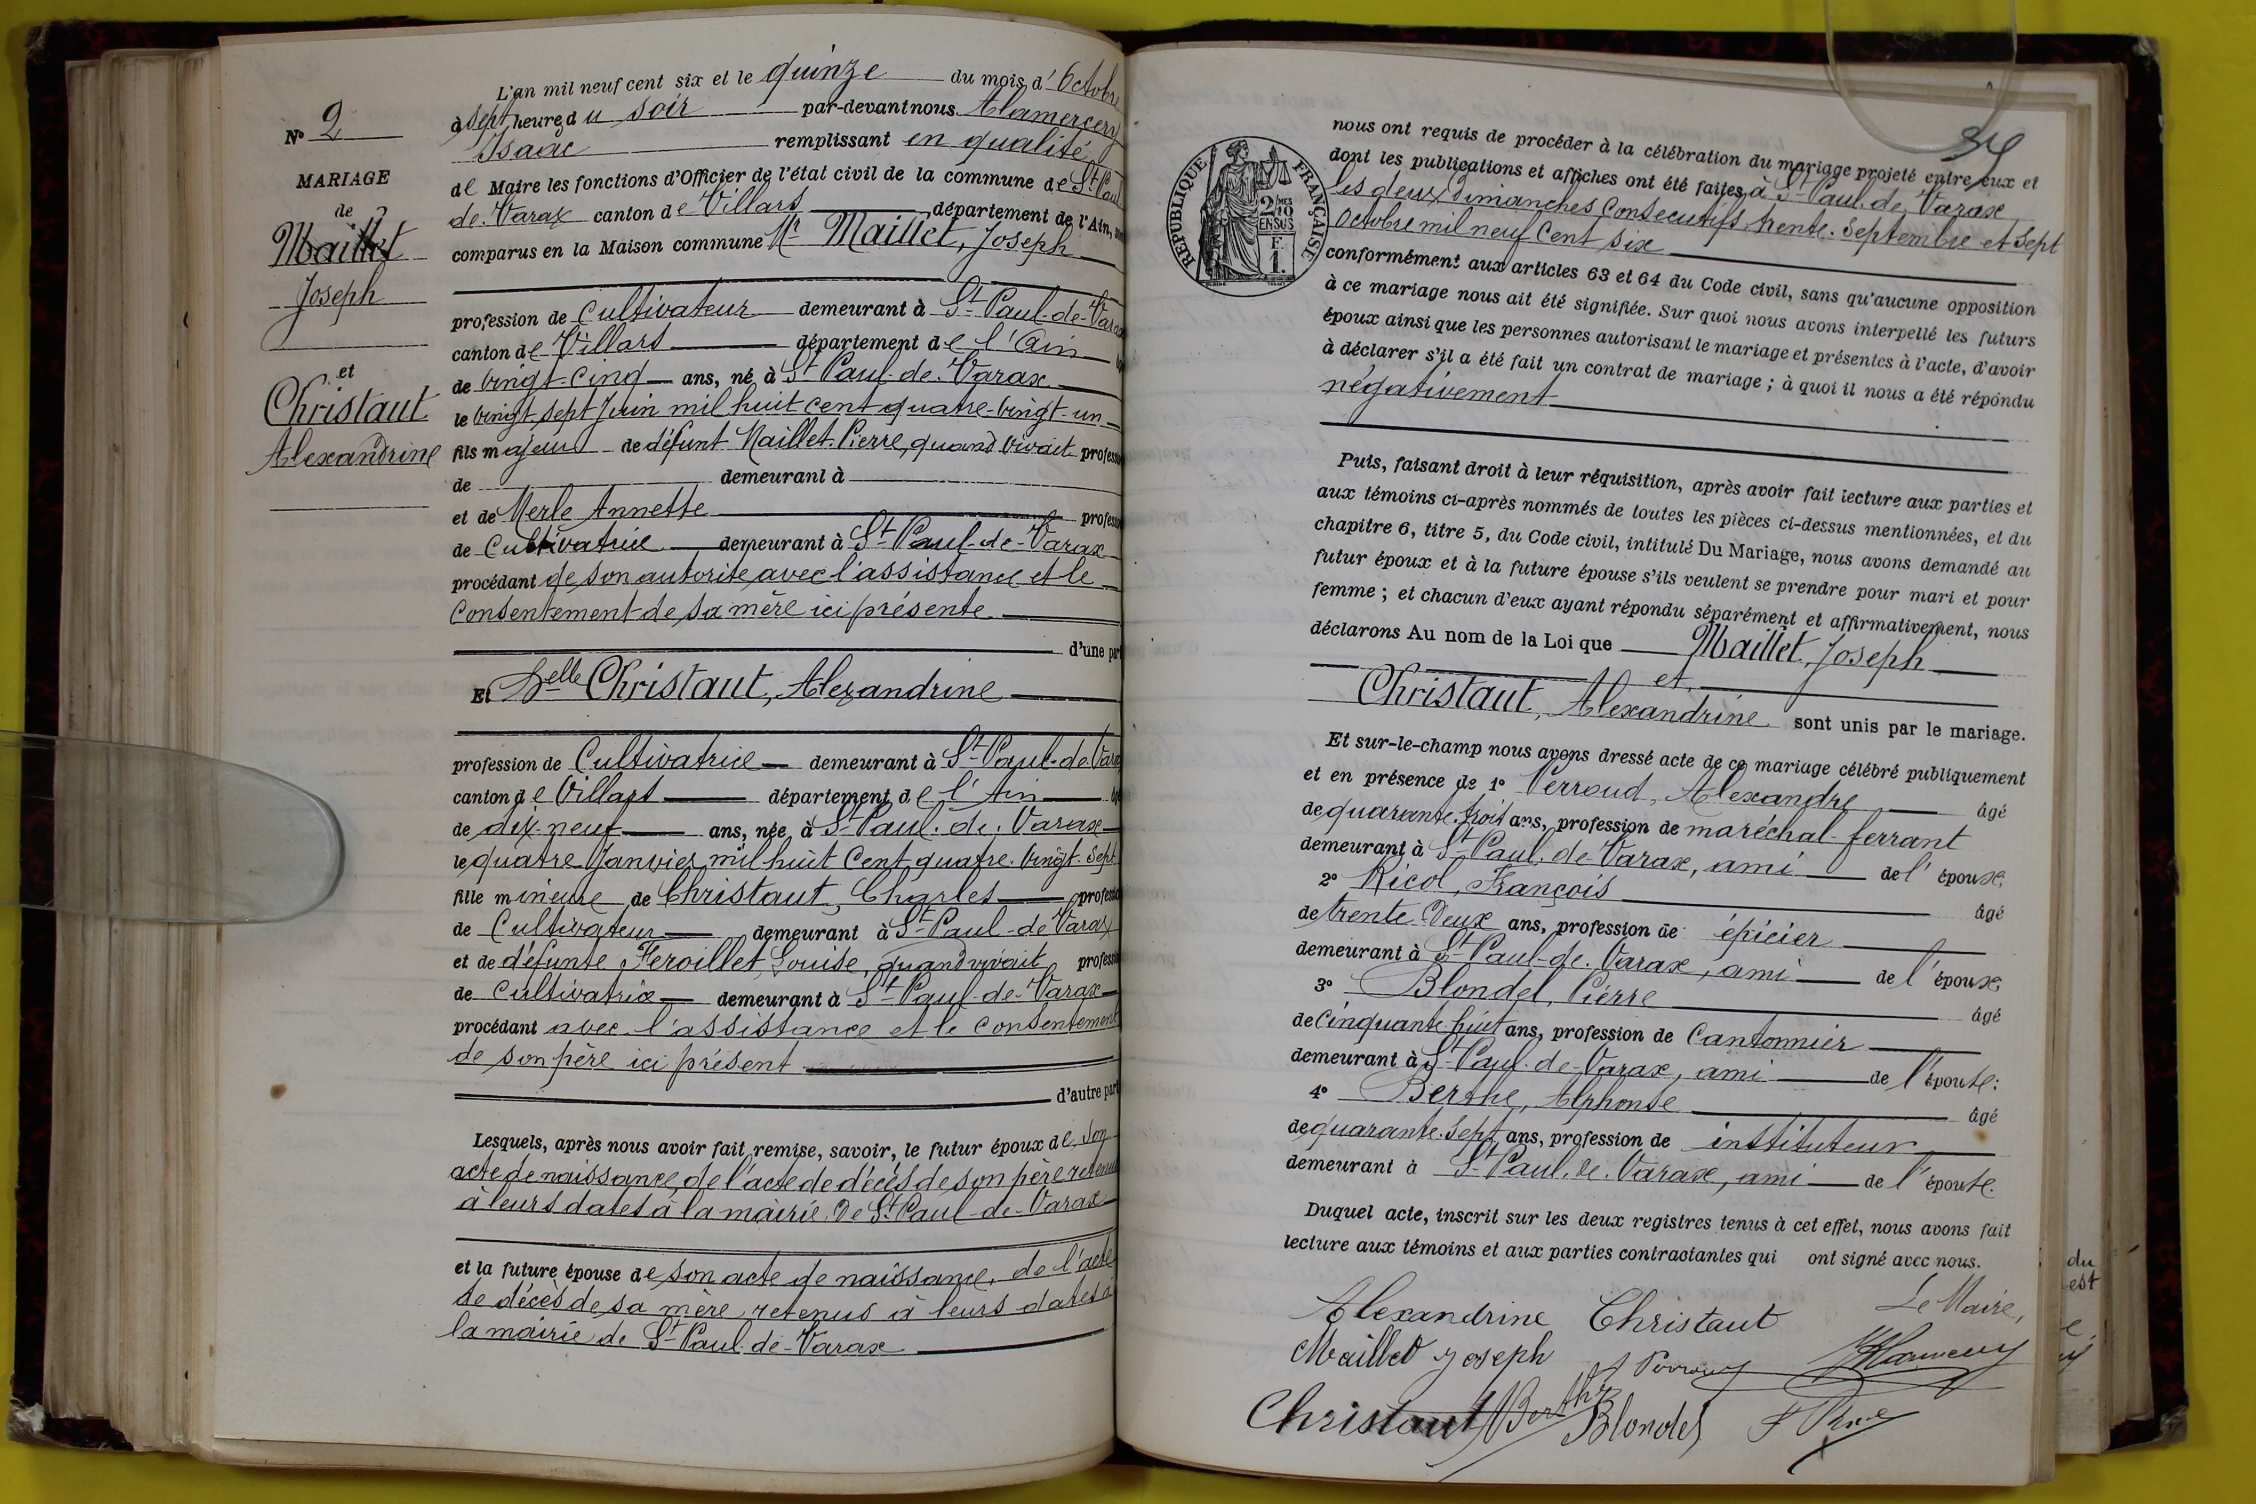 L'an mil neuf cent six et le quinze du mois d'Octobre
à sept heures du soir par-devant nous Alamercery
Isaac remplissant en qualité
de Maire les fonctions d'Officier de l'état civil de la commune de St Paul
de Varax canton de Villars département de l'Ain,
comparus en la Maison commune Mr Maillet, Joseph
profession de Cultivateur demeurant à St Paul-de-Varax
canton de Villars département de l'Ain
de vingt-cinq ans, né à St Paul-de-Varax
le vingt sept Juin mil huit cent quatre-vingt-un
fils majeur de défunt Maillet Pierre, quand vivait profession
de demeurant à
et de Merle Annette profession
de Cultivatrice demeurant à St Paul-de-Varax
procédant de son autorité avec l'assistance et le
consentement de sa mère ici présente
d'une part
Et Delle Christaut, Alexandrine
profession de Cultivatrice demeurant à St Paul-de-Varax
canton de Villars département de l'Ain âgé
de dix-neuf ans, née à St Paul-de-Varax
le quatre Janvier mil huit cent quatre-vingt-sept
fille mineure de Christaut, Charles profession
de Cultivateur demeurant à St Paul-de-Varax
et de défunte Feroillet Louise, quand vivait profession
de Cultivatrice demeurant à St Paul-de-Varax
procédant avec l'assistance et le consentement
de son père ici présent
d'autre part
Lesquels, après nous avoir fait remise, savoir, le futur époux de son
acte de naissance, de l'acte de décès de son père retenus
à leurs dates à la mairie de St Paul-de-Varax
et la future épouse de son acte de naissance, de l'acte
de décès de sa mère retenus à leurs dates à
la mairie de St Paul-de-Varax
No 2
MARIAGE
de
Maillet
Joseph
et
Christaut
Alexandrine
34
nous ont requis de procéder à la célébration du mariage projeté entre eux et
dont les publications et affiches ont été faites à St Paul-de-Varax
les deux Dimanches consécutifs trente Septembre et sept
Octobre mil neuf cent six
conformément aux articles 63 et 64 du Code civil, sans qu'aucune opposition
à ce mariage nous ait été signifiée. Sur quoi nous avons interpellé les futurs
époux ainsi que les personnes autorisant le mariage et présentes à l'acte, d'avoir
à déclarer s'il a été fait un contrat de mariage ; à quoi il nous a été répondu
négativement
RÉPUBLIQUE FRANÇAISE
2 MES
10
EN SUS
F.
1.
Puis, faisant droit à leur réquisition, après avoir fait lecture aux parties et
aux témoins ci-après nommés de toutes les pièces ci-dessus mentionnées, et du
chapitre 6, titre 5, du Code civil, intitulé Du Mariage, nous avons demandé au
futur époux et à la future épouse s'ils veulent se prendre pour mari et pour
femme ; et chacun d'eux ayant répondu séparément et affirmativement, nous
déclarons Au nom de la Loi que Maillet, Joseph
et
Christaut, Alexandrine sont unis par le mariage.
Et sur-le-champ nous avons dressé acte de ce mariage célébré publiquement
et en présence de 1o Perroud, Alexandre âgé
de quarante-trois ans, profession de maréchal-ferrant
demeurant à St Paul-de-Varax, ami de l'épouse,
2o Ricol, François âgé
de trente-deux ans, profession de épicier
demeurant à St Paul-de-Varax, ami de l'épouse,
3o Blondel, Pierre âgé
de Cinquante-huit ans, profession de Cantonnier
demeurant à St Paul-de-Varax, ami de l'épouse:
4o Berthe, Alphonse âgé
de quarante-sept ans, profession de instituteur
demeurant à St Paul-de-Varax, ami de l'épouse.
Duquel acte, inscrit sur les deux registres tenus à cet effet, nous avons fait
lecture aux témoins et aux parties contractantes qui ont signé avec nous.
Alexandrine Christaut Le Maire,
Maillet Joseph A Perroud
Christaut Berthe Blondel
du
est